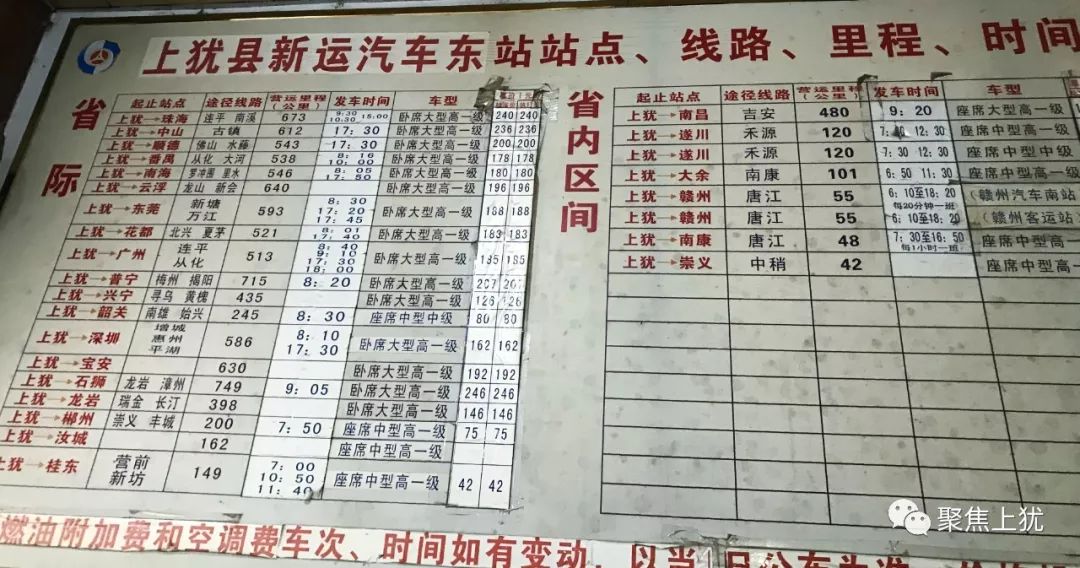 上犹县新运汽车东站站点、线路、里程、时间
省际
起止站点 途径线路 营运里程(公里) 发车时间 车型
上犹→珠海 连平 南溪 673 9:30 10:30 15:00 卧席大型高一级 240 240
上犹→中山 古镇 612 17:30 卧席大型高一级 236 236
上犹→顺德 佛山 水藤 543 17:30 卧席大型高一级 200 200
上犹→番禺 从化 大河 538 8:16 10:00 卧席大型高一级 178 178
上犹→南海 罗冲围 里水 546 8:05 17:50 卧席大型高一级 180 180
上犹→云浮 龙山 新会 640 卧席大型高一级 196 196
上犹→东莞 新塘 万江 593 8:30 17:20 17:45 卧席大型高一级 188 188
上犹→花都 北兴 夏茅 521 8:01 17:40 卧席大型高一级 183 183
上犹→广州 连平 从化 513 8:40 9:10 17:30 18:00 卧席大型高一级 185 185
上犹→普宁 梅州 揭阳 715 8:20 卧席大型高一级 207 207
上犹→兴宁 寻乌 黄槐 435 卧席大型高一级 126 126
上犹→韶关 南雄 始兴 245 8:30 座席中型中级 80 80
上犹→深圳 增城 惠州 平湖 586 8:10 17:30 卧席大型高一级 162 162
上犹→宝安 630 卧席大型高一级 192 192
上犹→石狮 龙岩 漳州 749 9:05 卧席大型高一级 246 246
上犹→龙岩 瑞金 长汀 398 卧席大型高一级 146 146
上犹→郴州 崇义 丰城 200 7:50 座席中型高一级 75 75
上犹→汝城 162 座席中型高一级
上犹→桂东 营前 新坊 149 7:00 10:50 11:40 座席中型高一级 42 42
省内区间
起止站点 途径线路 营运里程(公里) 发车时间 车型
上犹→南昌 吉安 480 9:20 座席大型高一级
上犹→遂川 禾源 120 7:30 12:30 座席中型高一级
上犹→遂川 禾源 120 7:30 12:30 座席中型中级
上犹→大余 南康 101 6:50 11:30 座席中型高一级
上犹→赣州 唐江 55 6:10至18:20 每20分钟一班 (赣州汽车南站
上犹→赣州 唐江 55 6:10至18:20 (赣州客运站
上犹→南康 唐江 48 7:30至16:50 每1小时一班 座席中型高一
上犹→崇义 中稍 42 座席中型高
燃油附加费和空调费车次、时间如有变动,以当日公车为准
聚焦上犹